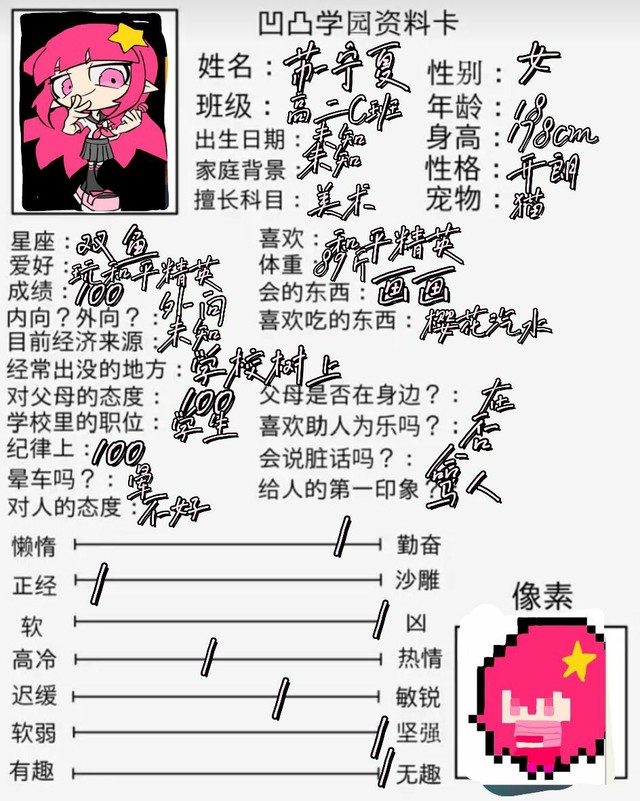 凹凸学园资料卡
姓名：苏宁夏 性别：女
班级：高二C班 年龄：18
出生日期：未知 身高：178cm
家庭背景：未知 性格：开朗
擅长科目：美术 宠物：猫
星座：双鱼 喜欢：和平精英
爱好：玩和平精英 体重：89斤
成绩：100 会的东西：画画
内向？外向？：外向 喜欢吃的东西：樱花汽水
目前经济来源：未知
经常出没的地方：学校树上
对父母的态度：100 父母是否在身边？：在
学校里的职位：学生 喜欢助人为乐吗？：否
纪律上：100 会说脏话吗？：会
晕车吗？：晕 给人的第一印象？骂人
对人的态度：不好
懒惰 勤奋
正经 沙雕
软 凶
高冷 热情
迟缓 敏锐
软弱 坚强
有趣 无趣
像素